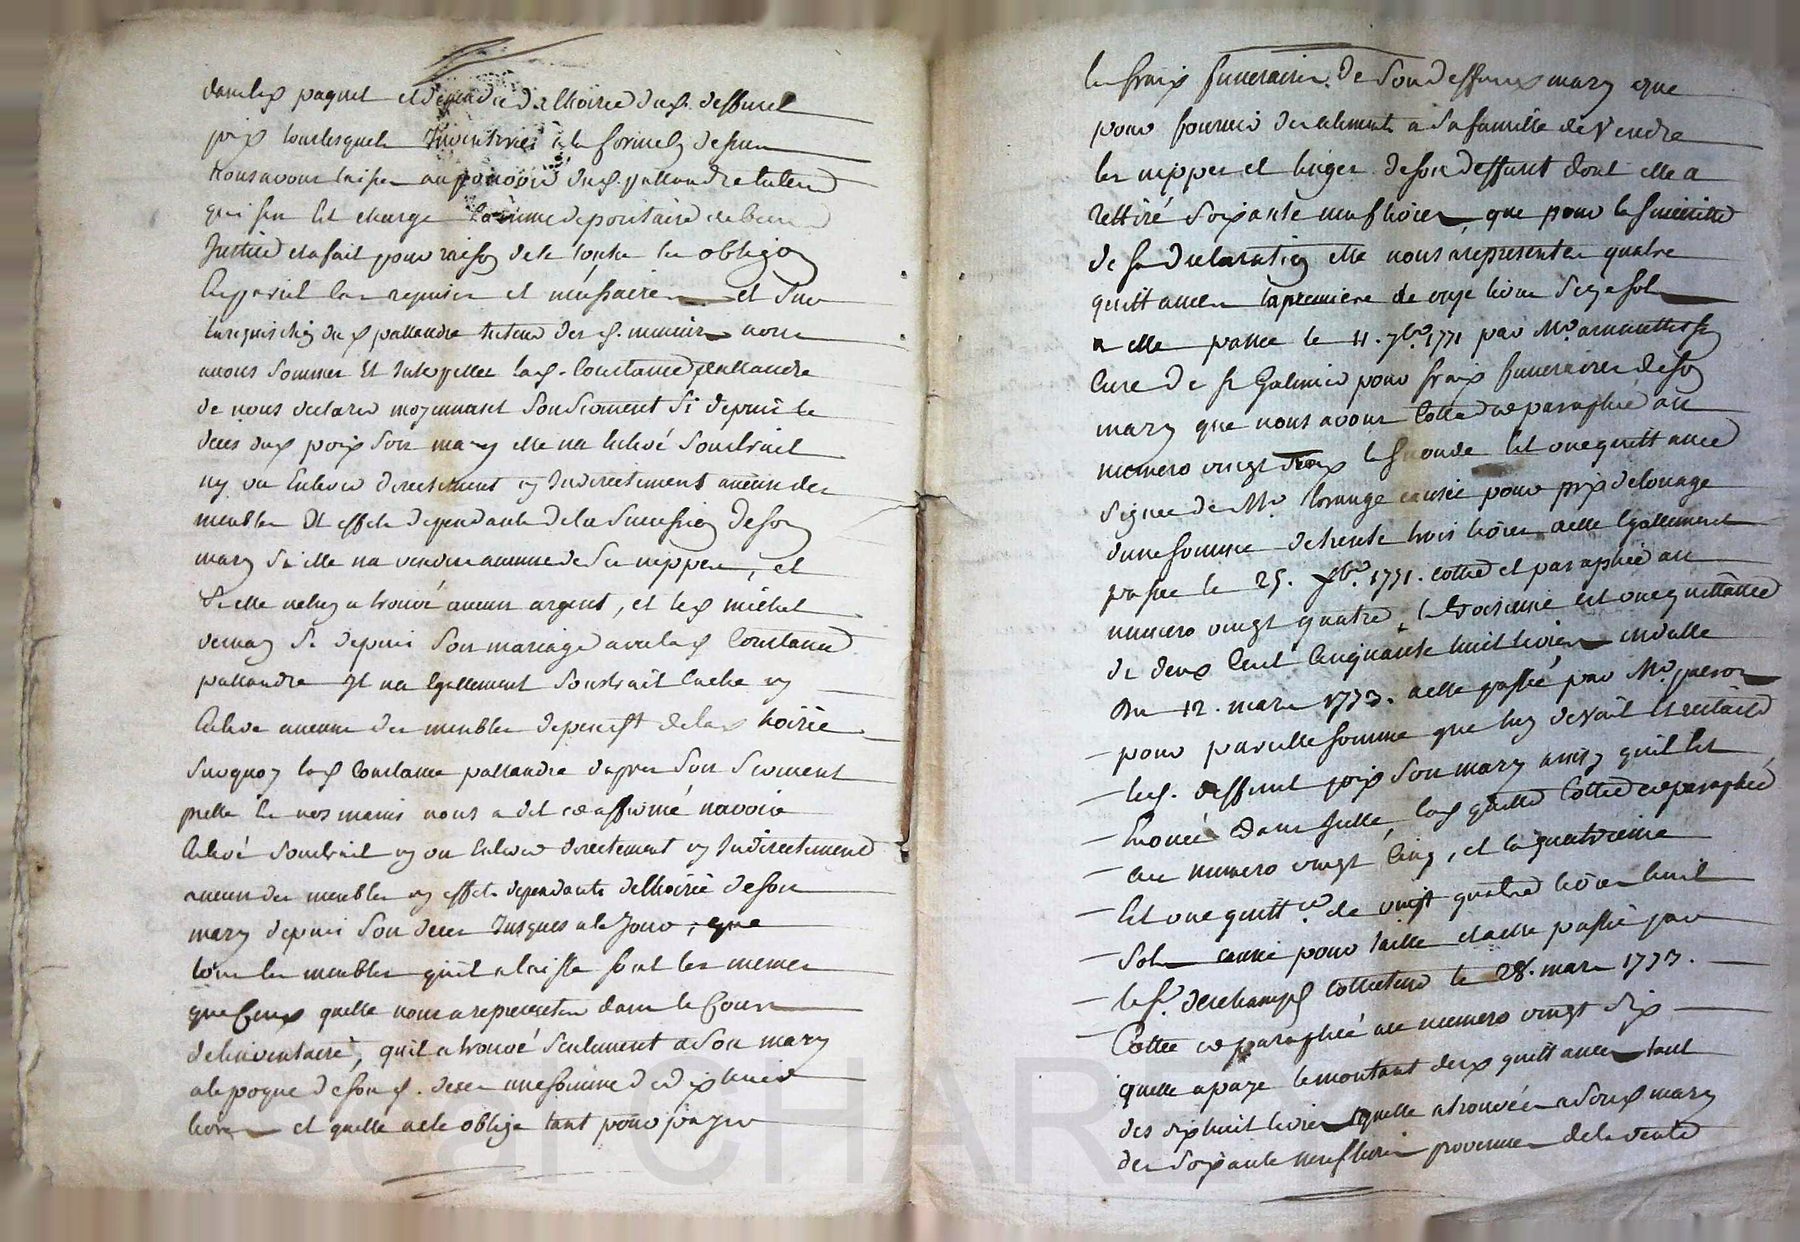 dans les papiers et dependre de lhoirie dud. deffunct
poix tous lesquels Inventoriés
Nous avons laissé au pouvoir dud. pallandre tuteur
qui sen est chargé comme depositaire de biens de
Justice et a fait pour raison de ce toutes les obligaõn
En pareil cas requises et necessaires et sur
la requisition dud pallandre tuteur des d. mineurs nous
avons sommé Et Interpellé lad. Constance pallandre
de nous declarer moyennant son Serment si depuis le
deces dud poix son mary elle na Enlevé soustrait
ny vu Enlever directement ny Indirectement aucun des
meubles Et effets dependants de la succession de son
mary si elle na vendu aucune de ses nippes, et
si elle ne luy a trouvé aucun argent, et led michel
si depuis son mariage avec lad Constance
pallandre Il na Egallement soustrait caché ny
Enlevé aucuns des meubles dependt de lad hoirie
surquoy lad Constance pallandre dapres son serment
presté En nos mains nous a dit et affirmé navoir
Enlevé soustrait ny vu Enlever directement ny Indirectement
aucun des meubles ny effets dependants de lhoirie de son
mary depuis son deces Jusques a ce Jour, que
tous les meubles quil a laissé sont les memes
que Ceux quelle nous a representés dans le Cours
de linventaire, quil a trouvé seulement a son mary
a lepoque de son d. deces une somme de dix huit
livres et quelle a ete obligé tant pour payer
les fraix funeraires de son deffunt mary que
pour fournir des aliments a sa famille de Vendre
les nippes et linges de son deffunt dont elle a
rettiré soixante neuf livres, que pour la sincerité
de sa declaration elle nous a representé quatre
quittances la premiere de onze livres seize sols
a elle passée le 11. 7bre 1771 par Mr.
Curé de st Galmier pour fraix funeraires de son
mary que nous avons Cotté et paraphé au
numero vingt trois la seconde Est une quittance
signée de Mr. causée pour prix de louage
dune somme de trente trois livres a elle Egallement
passée le 25. 1771. cottée et paraphée au
numero vingt quatre, la troisieme est une quittance
de deux Cent Cinquante huit livres en datte
du 12. mars 1773. a elle passée par Mr.
pour pareille somme que luy devoit
led. deffunt poix son mary ainsy quil Est
Enoncé dans Icelle, lad quitte Cottée et paraphée
au numero vingt Cinq, et la quatrieme
Est une quittce de vingt quatre livres huit
sols causée pour taille et a elle passée par
le sr. deschamps Collecteur le 28. mars 1773.
Cottée et paraphée au numero vingt six
quelle a payé le montant desd quittances tant
des dix huit livres quelle a trouvées a sond mary
des soixante neuf livres provenues de la vente